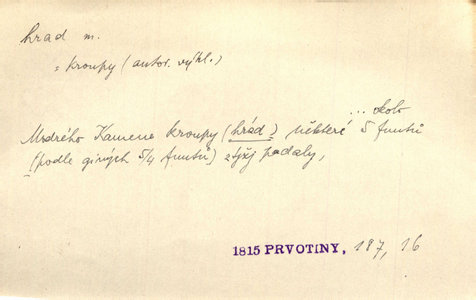 hrad m.
= kroupy (autor. výkl.)
... okolo
Modrého Kamene kroupy (hrád) některé 5 funtů
(podle giných 5/4 funtů) ztjžj padaly,
1815 PRVOTINY, 187, 16